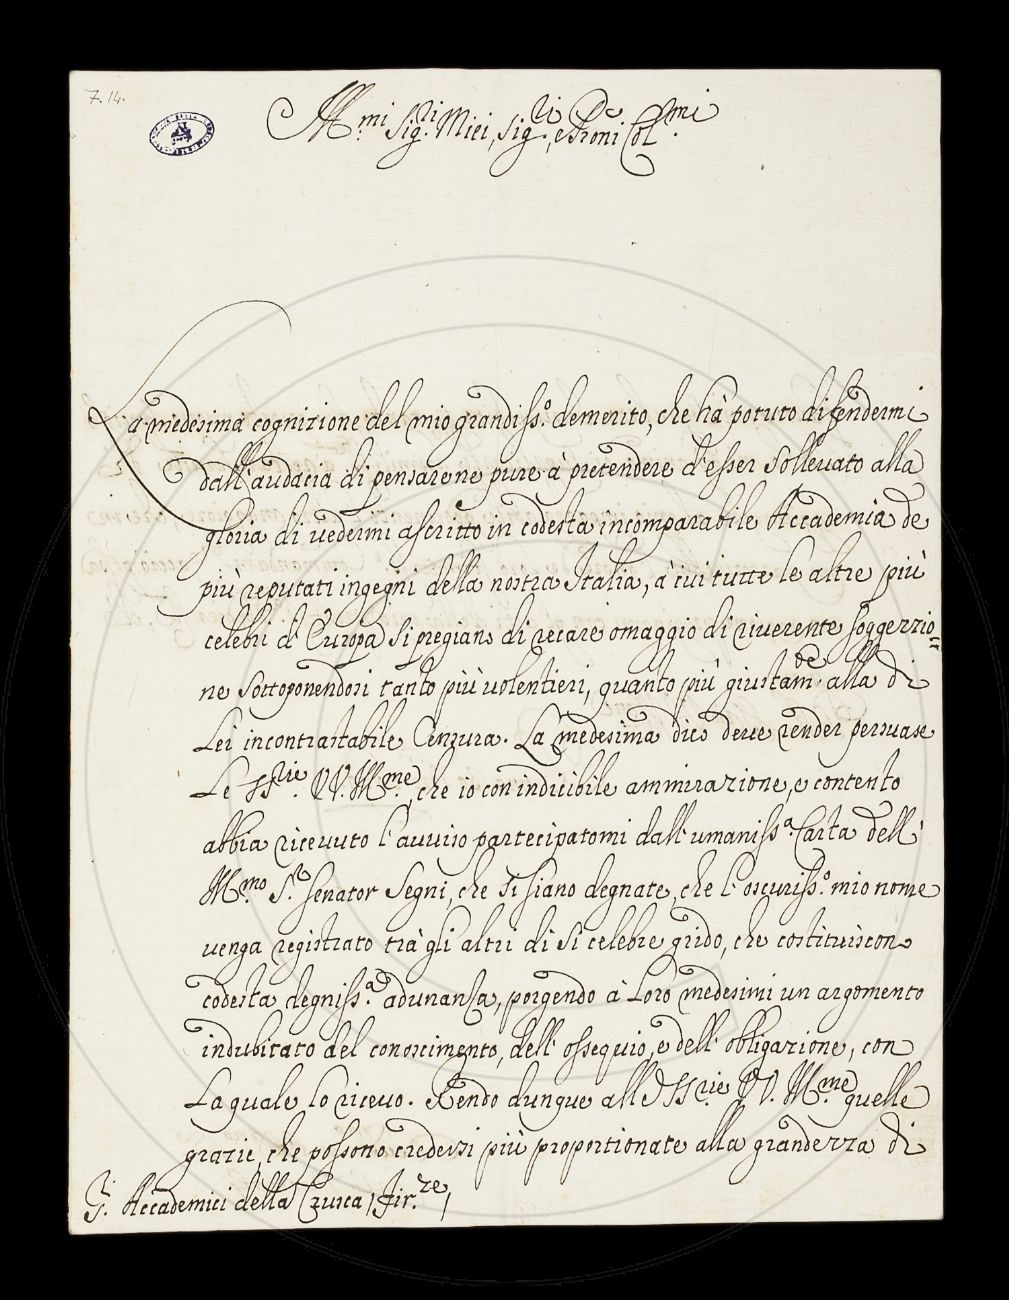 7. 14.
Ill.mi Sig.ri Miei, Sig.ri, e P.roni Col.mi
La medesima cognizione del mio grandiss.o demerito, che hà potuto difendermi
dall'audacia di pensare ne pure à pretendere d'esser sollevato alla
gloria di vedermi ascritto in codesta incomparabile Accademia de
più reputati ingegni della nostra Italia, à cui tutte le altre più
celebri d'Europa si pregiano di recare omaggio di riverente soggezzio=
ne sottoponendosi tanto più volentieri, quanto più giustam.te alla di
Lei incontrastabile Cenzura. La medesima dico deve render persuase
Le SS.rie VV. Ill.me, che io con indicibile ammirazione, e contento
abbia ricevuto l'avviso partecipatomi dall'umaniss.a Carta dell'
Ill.mo S.r Senator Segni, che si siano degnate, che l'oscuriss.o mio nome
venga registrato trà gli altri di sì celebre grido, che costituiscono
codesta degniss.a adunanza, porgendo à Loro medesimi un argomento
indubitato del conoscimento, dell'ossequio, e dell'obbligazione, con
La quale lo ricevo. Rendo dunque alle SS.rie VV. Ill.me quelle
grazie, che possono credersi più proportionate alla grandezza di
S.i Accademici della Crusca, Fir.ze,